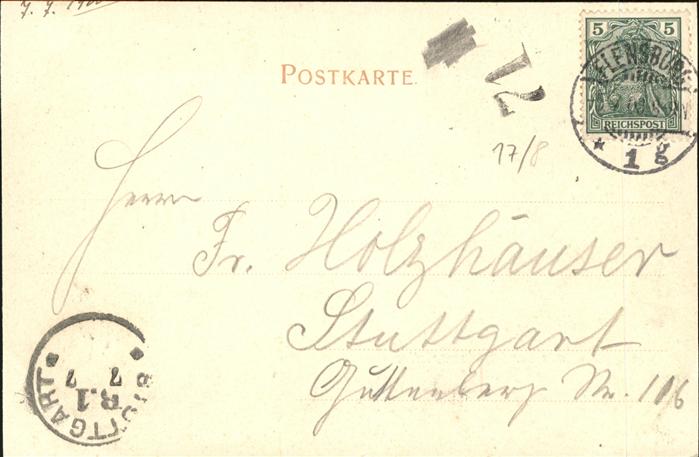 7. 7. 1900
POSTKARTE
12
5 5
FLENSBURG
REICHSPOST
* 1 g
17/8
Herrn
Fr. Holzhäuser
Stuttgart
Guttenberg Str. 106
STUTTGART
R.1
7 7